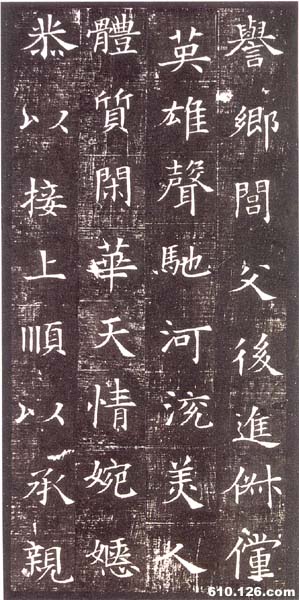 譽鄉閭父後進俦儻
英雄聲馳河流美人
體質閑華天情婉嬺
恭以接上順以承親
610.126.com